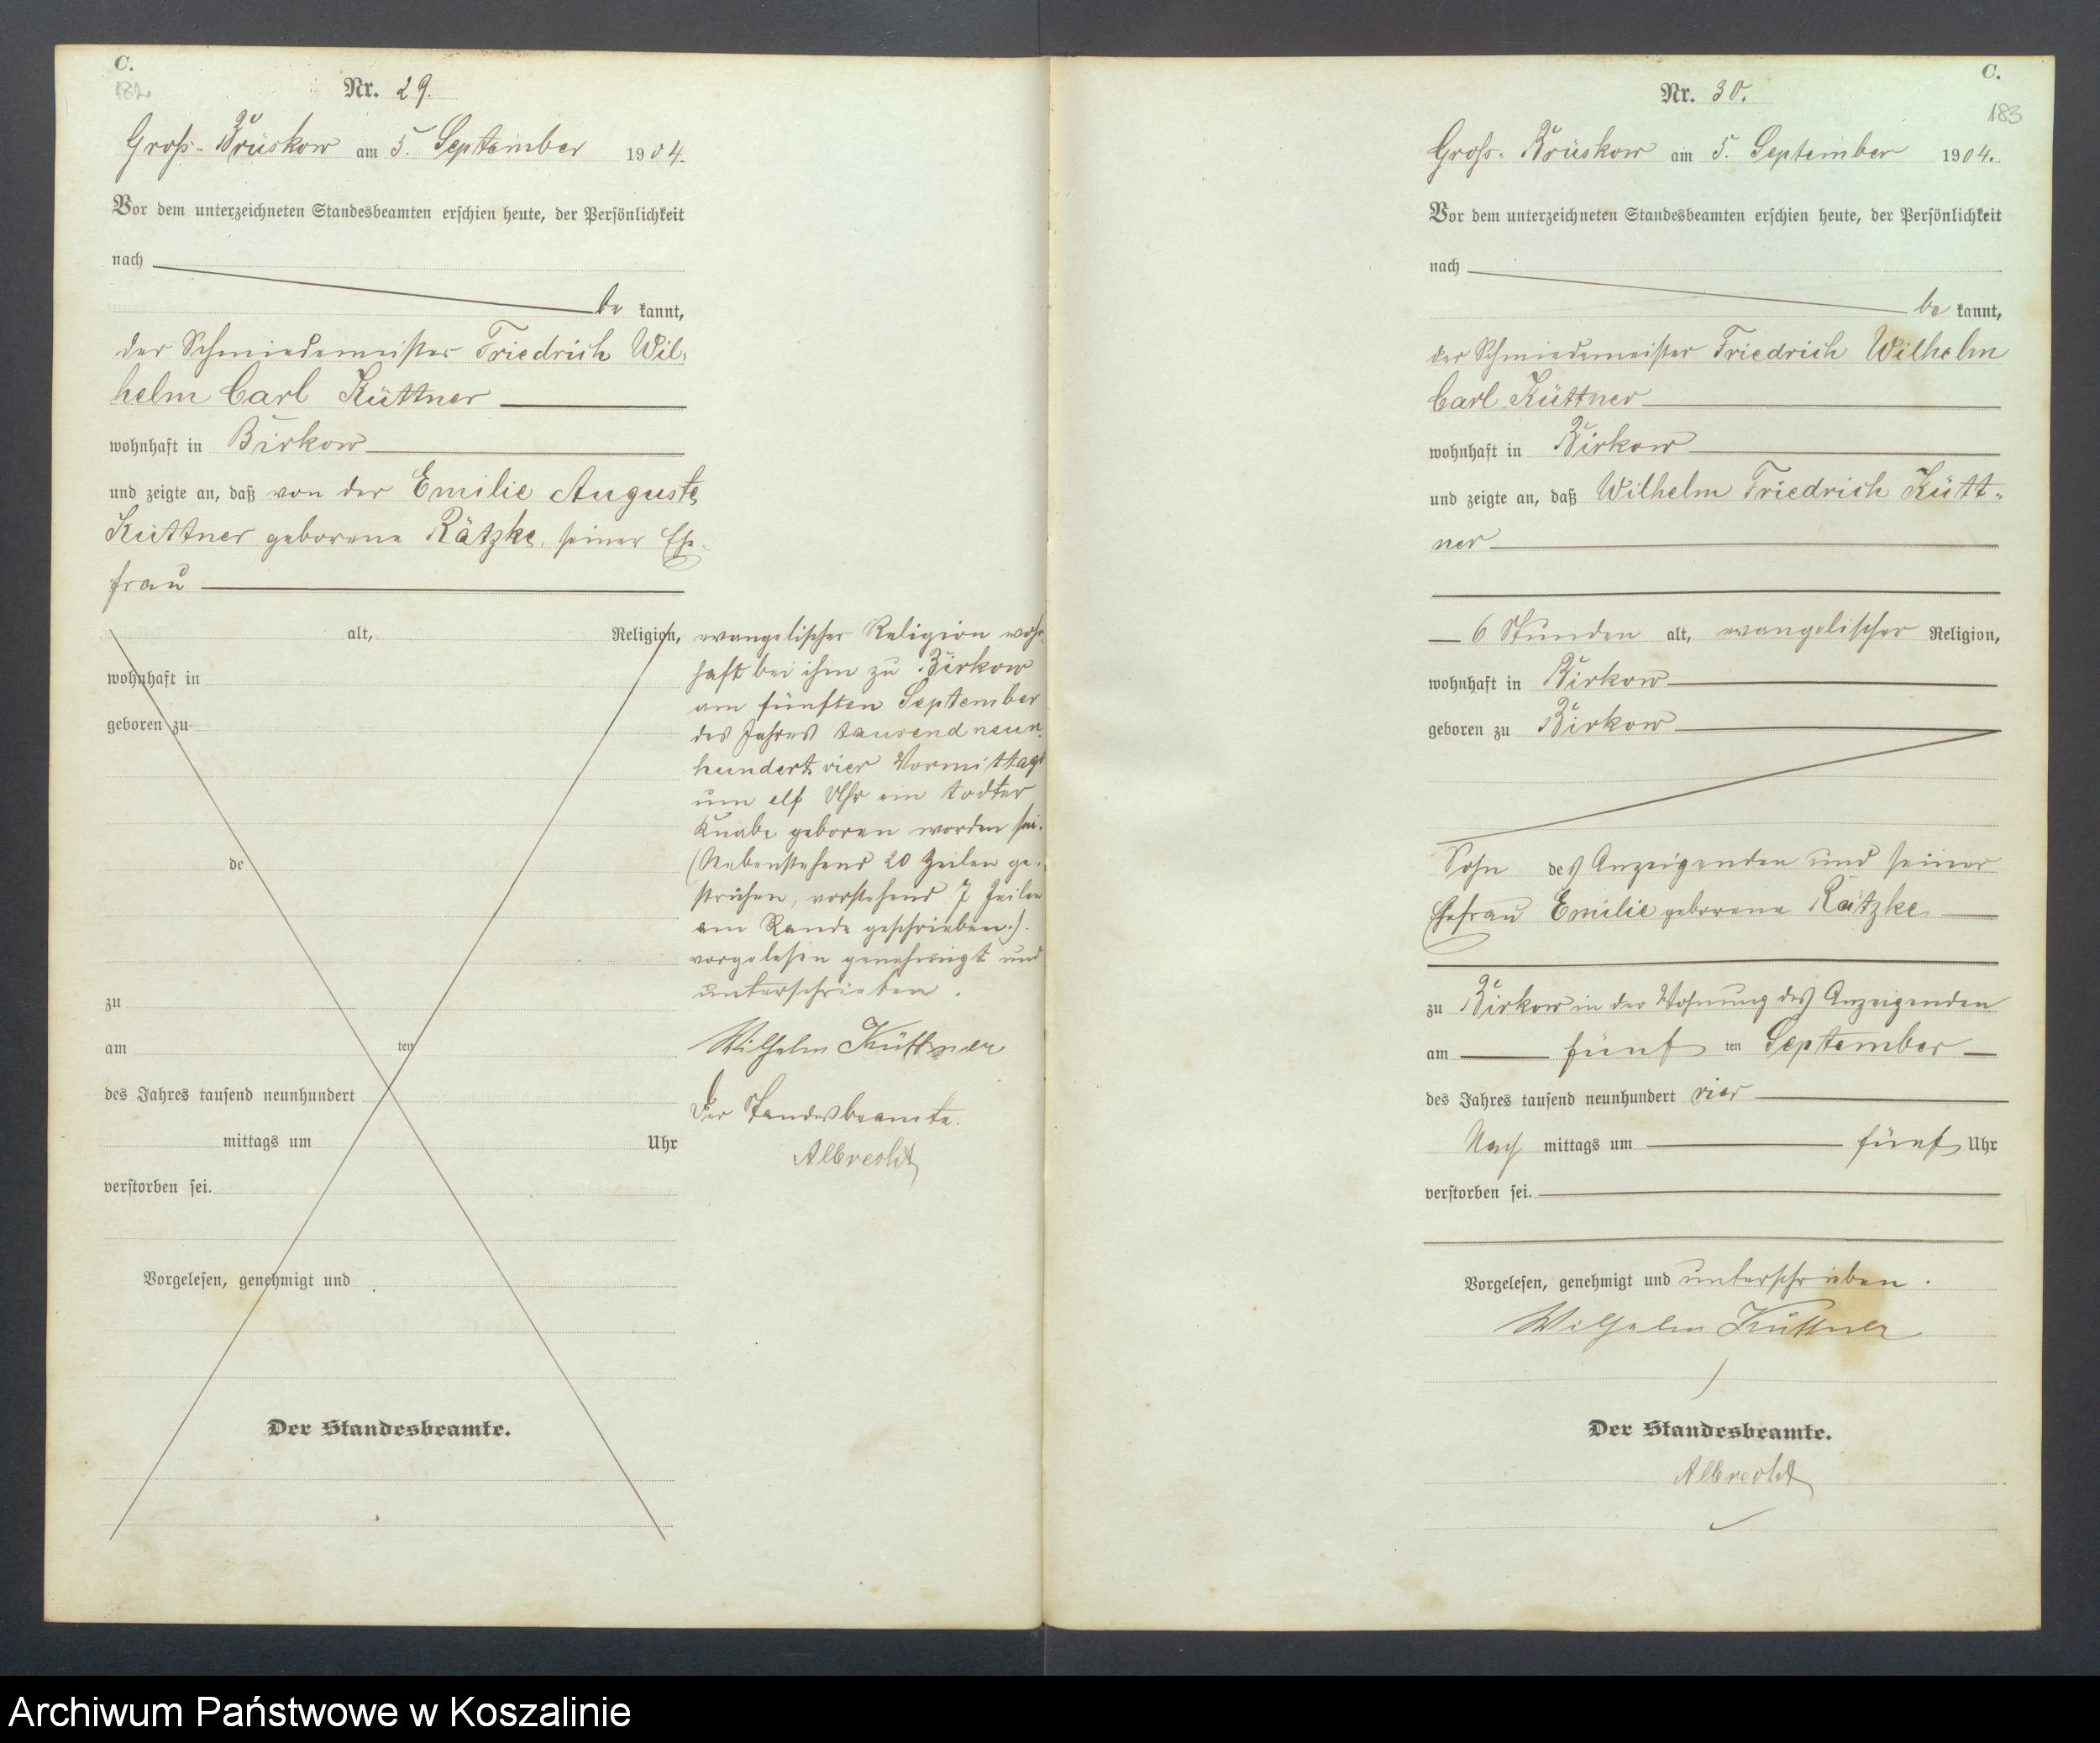 C.
182
Nr. 29.
Groß-Brüskow am 5. September 1904.
Vor dem unterzeichneten Standesbeamten erschien heute, der Persönlichkeit
nach
be kannt,
der Schmiedemeister Friedrich Wil-
helm Carl Küttner
wohnhaft in Birkow
und zeigte an, daß von der Emilie Auguste
Küttner geborene Rätzke, seiner Ehe-
frau
alt, Religion,
wohnhaft in
geboren zu
de
zu
am ten
des Jahres tausend neunhundert
mittags um Uhr
verstorben sei.
Vorgelesen, genehmigt und
Der Standesbeamte.
evangelischer Religion wohn-
haft bei ihm zu Birkow
am fünften September
des Jahres tausend neun-
hundert vier Vormittags
um elf Uhr ein todter
Knabe geboren worden sei.
(Nebenstehend 20 Zeilen ge-
strichen, vorstehend 7 Zeilen
am Rande geschrieben.).
vorgelesen genehmigt und
unterschrieben.
Wilhelm Küttner
Der Standesbeamte.
Albrecht
C.
183
Nr. 30.
Groß-Brüskow am 5. September 1904.
Vor dem unterzeichneten Standesbeamten erschien heute, der Persönlichkeit
nach
be kannt,
der Schmiedemeister Friedrich Wilhelm
Carl Küttner
wohnhaft in Birkow
und zeigte an, daß Wilhelm Friedrich Kütt-
ner
6 Stunden alt, evangelischer Religion,
wohnhaft in Birkow
geboren zu Birkow
Sohn des Anzeigenden und seiner
Ehefrau Emilie geborene Rätzke
zu Birkow in der Wohnung des Anzeigenden
am fünf ten September
des Jahres tausend neunhundert vier
Nach mittags um fünf Uhr
verstorben sei.
Vorgelesen, genehmigt und unterschrieben.
Wilhelm Küttner
Der Standesbeamte.
Albrecht
Archiwum Państwowe w Koszalinie